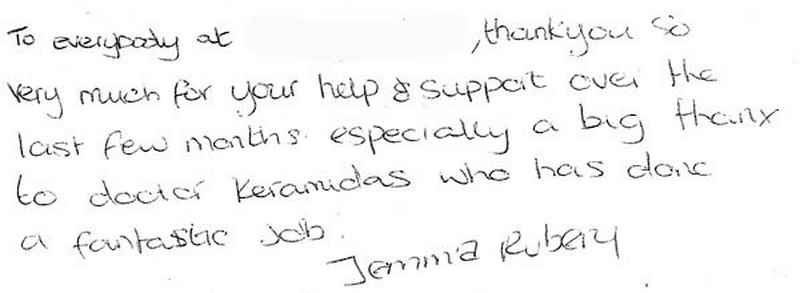 To everybody at , thankyou so
very much for your help & support over the
last few months. especially a big thanx
to doctor Keramidas who has done
a fantastic job.
Jemma Rubery